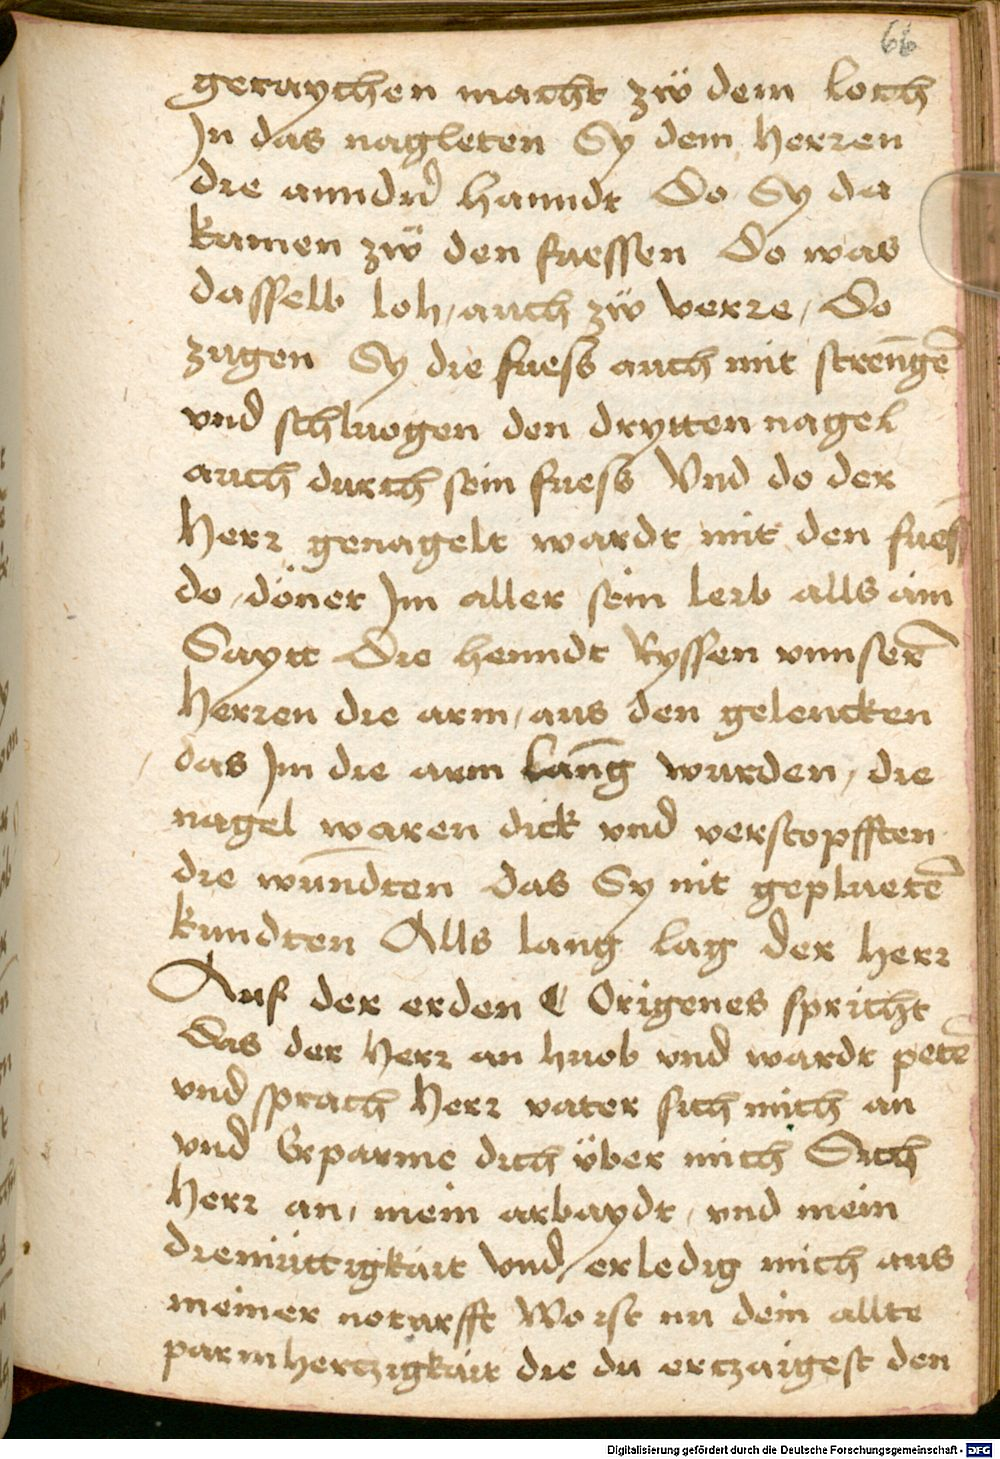 66
geraychen macht zẅ dem loch
Jn das nagleten Sy dem Herren
die annder hanndt Do Sy da
kamen zẅ den fuessen Do was
dasselb loh / auch zẅ verre / Do
zugen Sy die fuess auch mit strenḡē
vnd schluogen den drytten nagel
auch durch sein fuess Vnd do der
Herr genagelt wardt mit den fuess
do döner Jm aller sein leib alls ain
Saytt Die henndt Ryssen vnnserē
Herren die arm / aus den gelencken
das Jm die arm lan̄g wurden / die
nagel waren dick vnd verstopfften
die wun̄dten das Sy nit gepluetē
kundten Alls lang lag der herr
Auf der erden ¶ Origenes spricht
Das der Herr an huob vnd wardt petē
vnd sprach Herr vater sich mich an
vnd Erparme dich über mich Sich
Herr an / mein arbaydt / vnd mein
diemüttigkait Vnd / erledig mich aus
meiner noturfft Wo ist nu dein allte
parmhertzigkait die du ertzaigest den
Digitalisierung gefördert durch die Deutsche Forschungsgemeinschaft - DFG